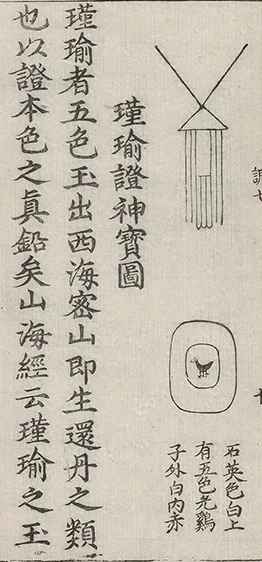 石英色白上
有五色光鷄
子外白内赤
瑾瑜證神寶圖
瑾瑜者五色玉出西海密山即生還丹之類
也以證本色之真鉛矣山海經云瑾瑜之玉